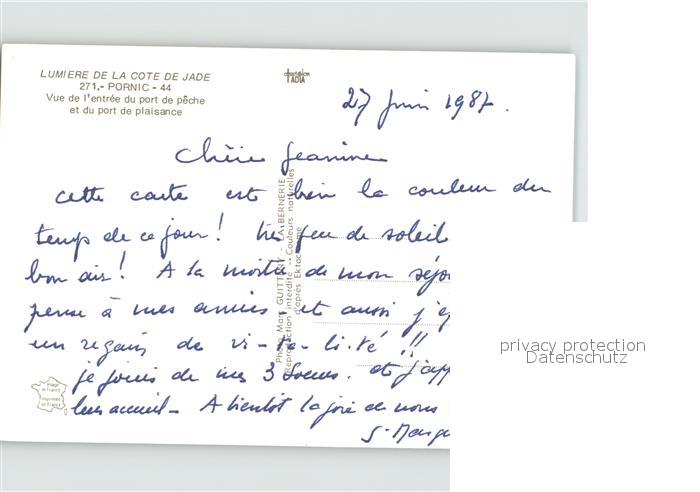 LUMIERE DE LA COTE DE JADE
271.- PORNIC - 44
Vue de l'entrée du port de pêche
et du port de plaisance
27 Juin 1987.
Chère Jeanine
cette carte est bien la couleur du
temps de ce jour ! très peu de soleil
bon air ! A la moitié de mon séjo
pense à mes amies, et aussi j'
un regain de vi-ta-li-té !!!
je jouis de mes 3 Soeurs. et j'app
leur accueil - A bientôt la joie de nous
S. Marg
Photo Marc GUITTENY - LA BERNERIE
Reproduction interdite - Couleurs naturelles
d'après Ektachrome
image de France
imprimée en France
privacy protection
Datenschutz